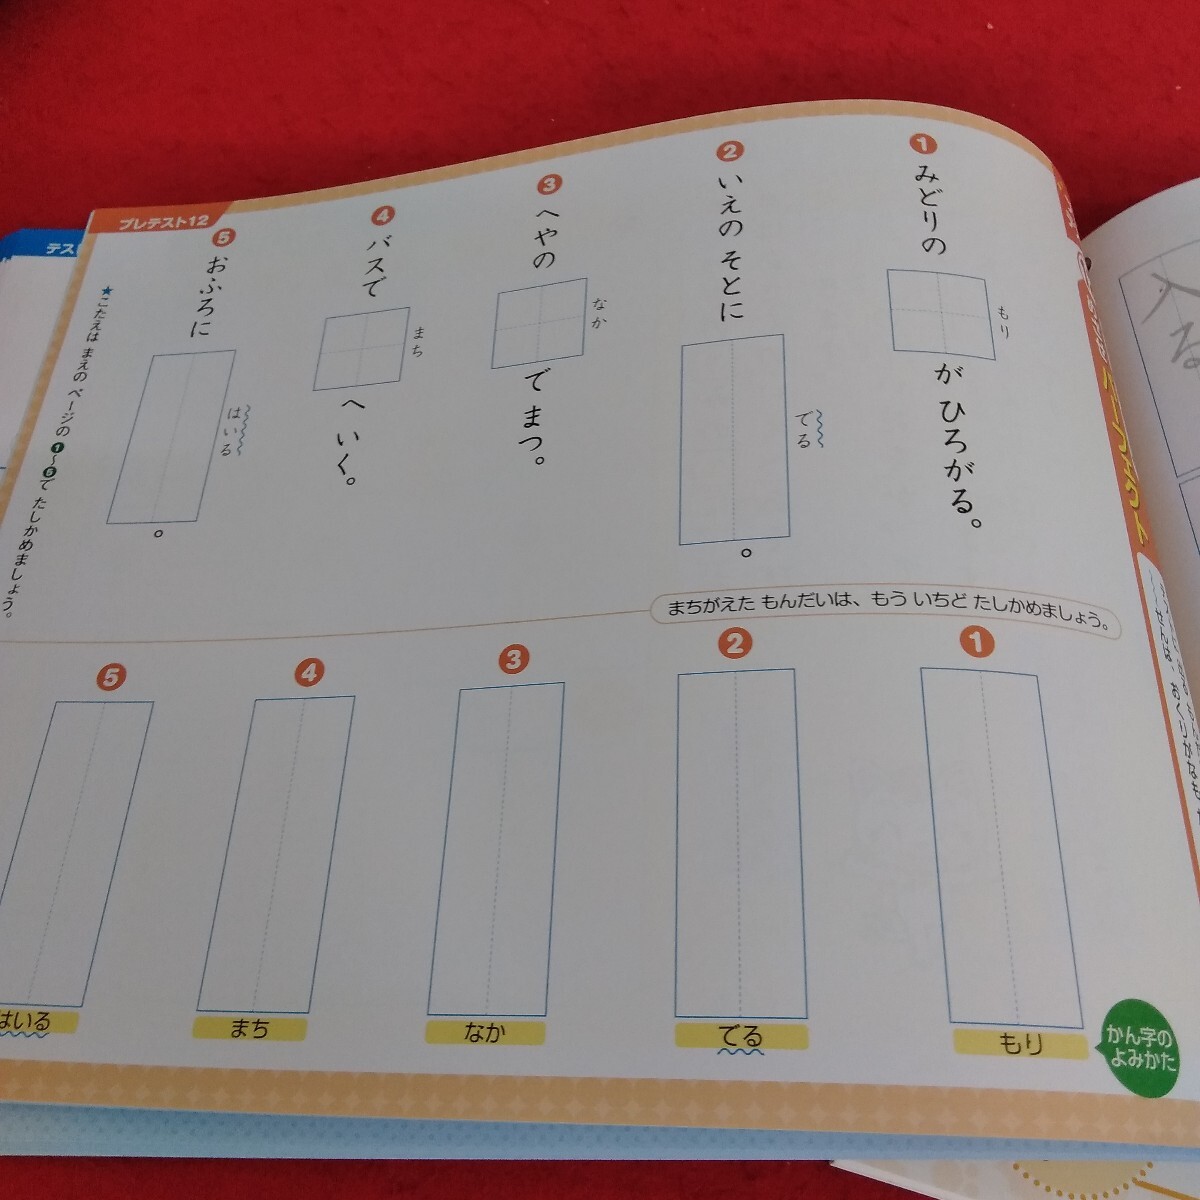 ❶ みどりの
もり
が ひろがる。
❷ いえの そとに
でる
。
❸ へやの
なか
で まつ。
❹ バスで
まち
へ いく。
❺ おふろに
はいる
。
プレテスト12
★こたえは まえの ページの ❶〜❺で たしかめましょう。
まちがえた もんだいは、もう いちど たしかめましょう。
❶
❷
❸
❹
❺
かん字の
よみかた
もり
でる
なか
まち
はいる
テス
る